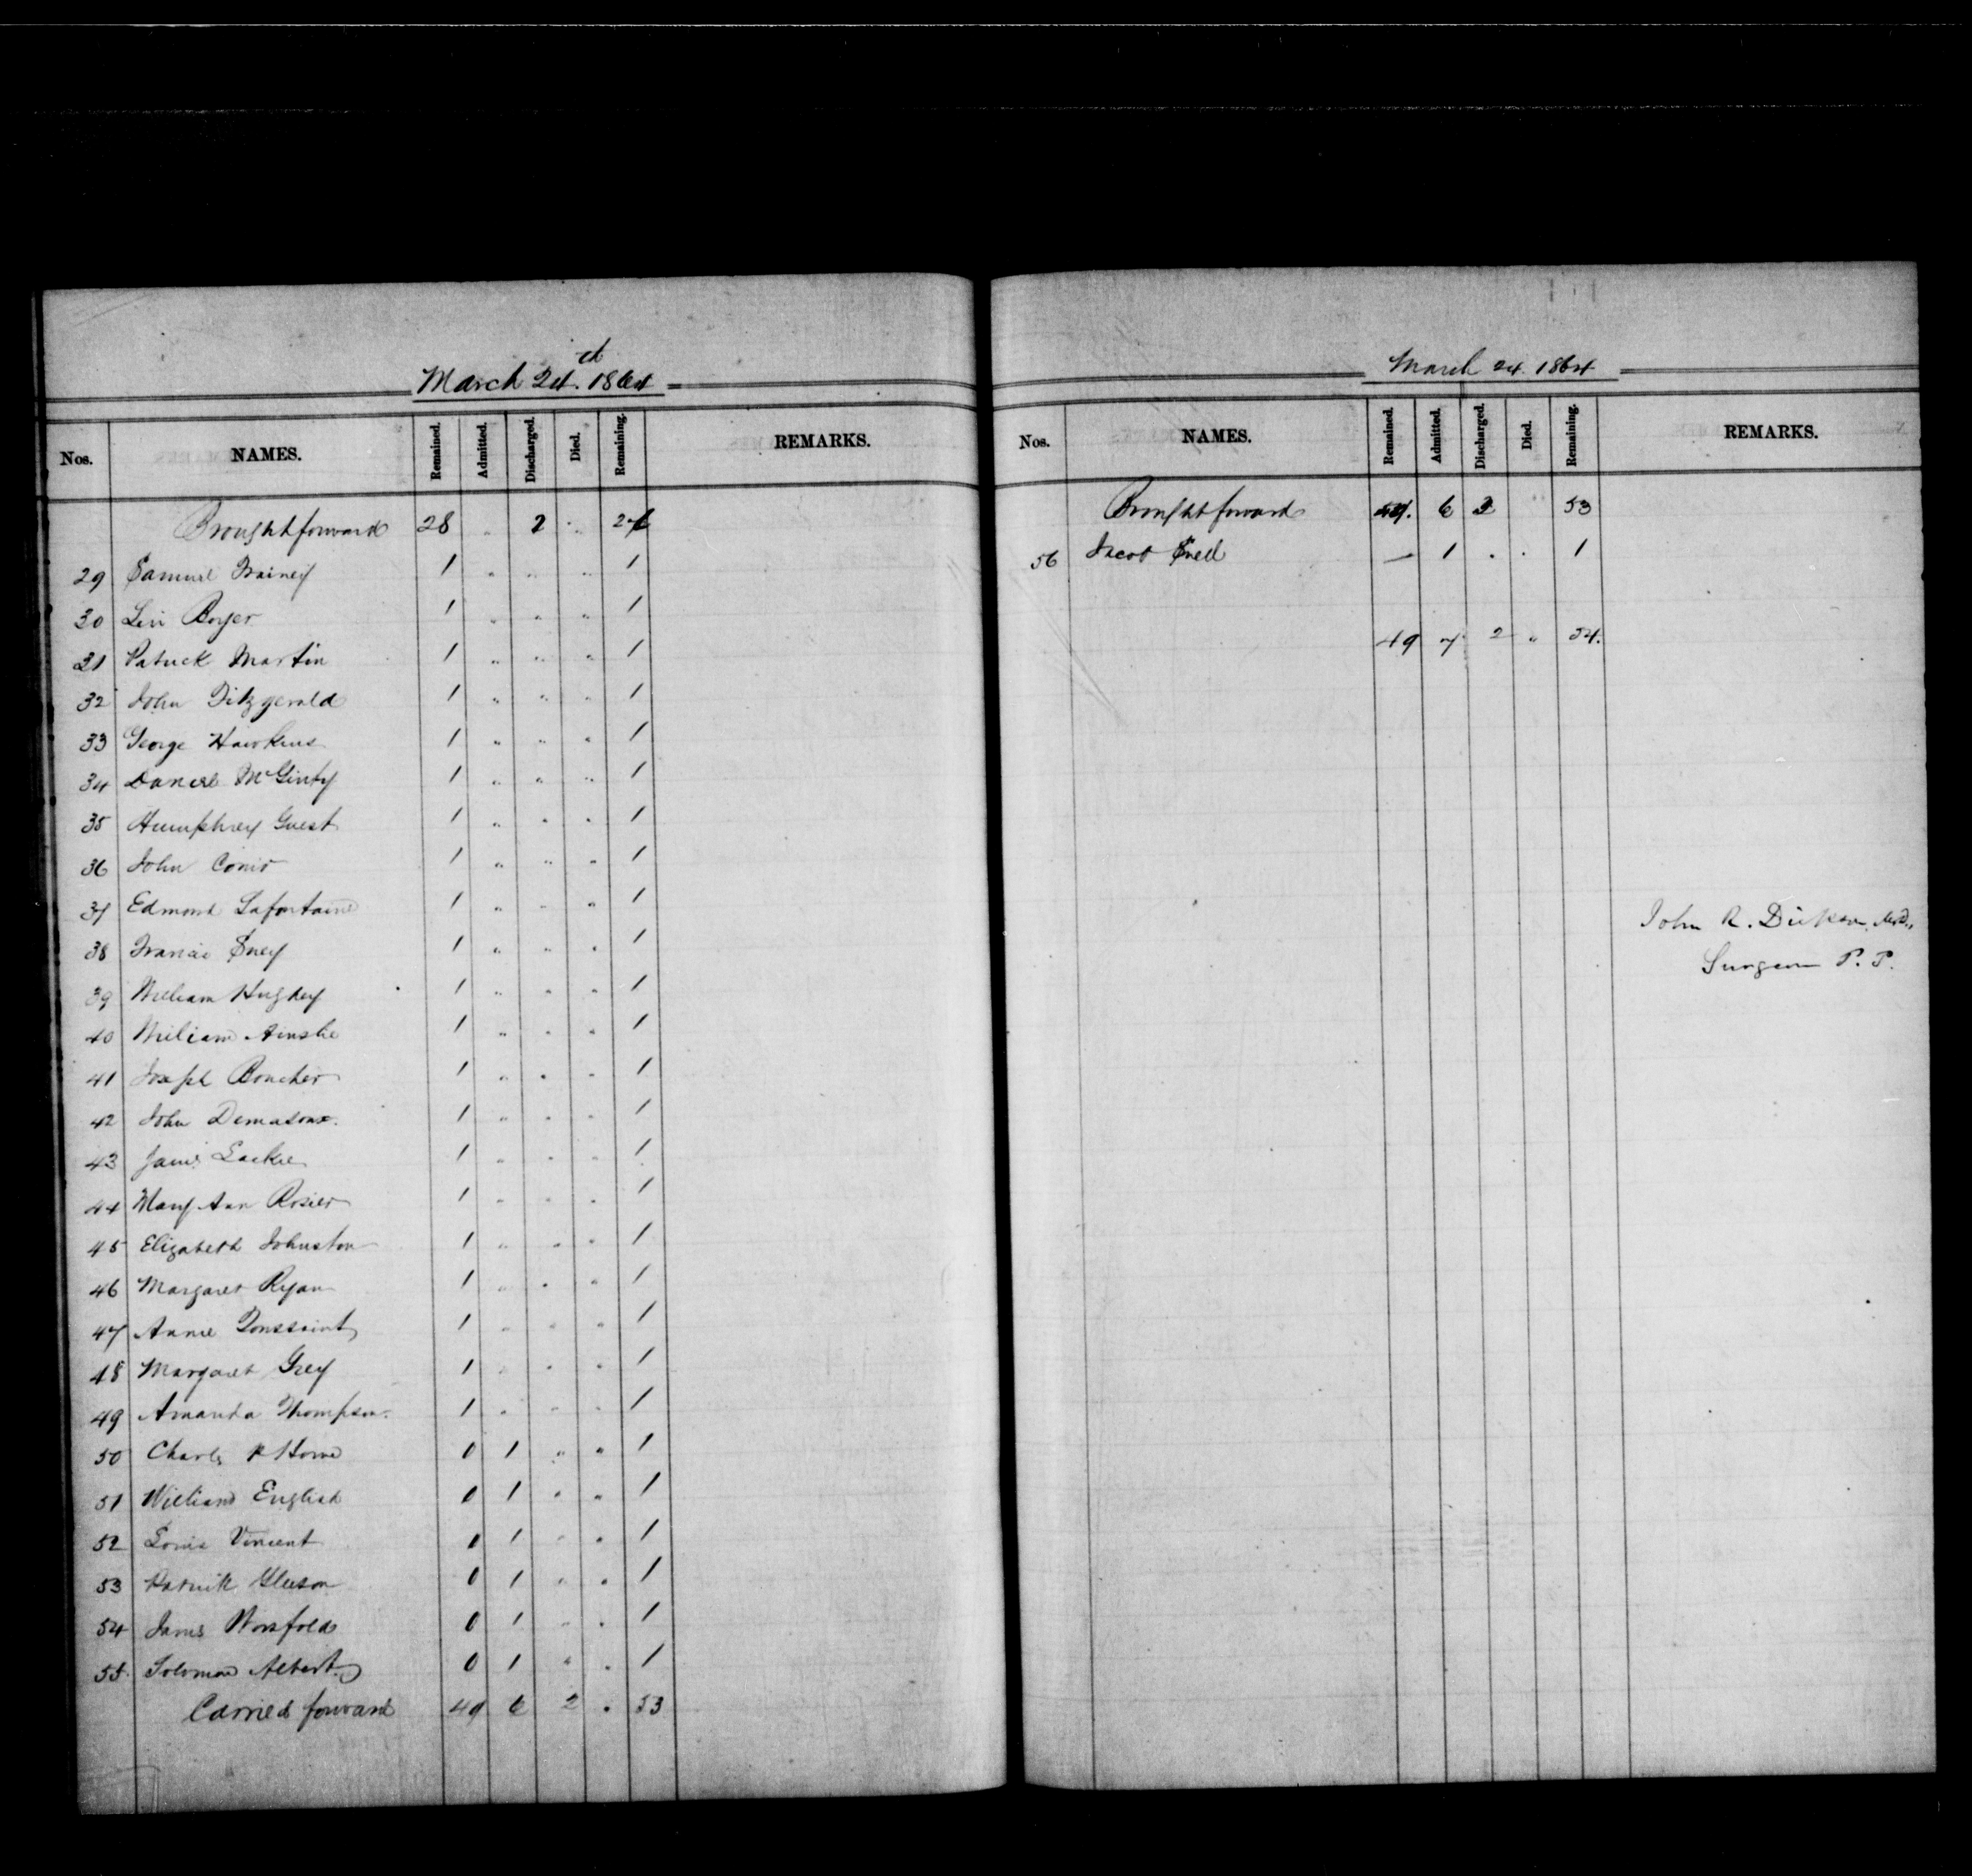 March 24th. 1864
Nos. NAMES. Remained. Admitted. Discharged. Died. Remaining. REMARKS.
Brought forward 28 " 2 " 26
29 Samuel Trainey 1 " " " 1
30 Levi Boyer 1 " " " 1
31 Patrick Martin 1 " " " 1
32 John Fitzgerald 1 " " " 1
33 George Hawkins 1 " " " 1
34 Daniel McGinty 1 " " " 1
35 Humphrey Guest 1 " " " 1
36 John 1 " " " 1
37 Edmond Lafontaine 1 " " " 1
38 Francis 1 " " " 1
39 William Hughey 1 " " " 1
40 William Ainslie 1 " " " 1
41 Joseph Boucher 1 " " " 1
42 John 1 " " " 1
43 James Lackie 1 " " " 1
44 Mary Ann Rosier 1 " " " 1
45 Elizabeth Johnston 1 " " " 1
46 Margaret Ryan 1 " " " 1
47 Annie Toussaint 1 " " " 1
48 Margaret Grey 1 " " " 1
49 Amanda Thompson. 1 " " " 1
50 Charles R Horne 0 1 " " 1
51 William English 0 1 " " 1
52 Louis Vincent 0 1 " " 1
53 Patrick Gleeson 0 1 " " 1
54 James Worsfold 0 1 " " 1
55. Solomon Albert 0 1 " " 1
Carried forward 49 6 2 " 53
March 24. 1864
Nos. NAMES. Remained. Admitted. Discharged. Died. Remaining. REMARKS.
Brought forward 49. 6 2 " 53
56 Jacob Snell — 1 . . 1
49 7 2 " 54.
John R. Dickson, M.D.,
Surgeon P. P.